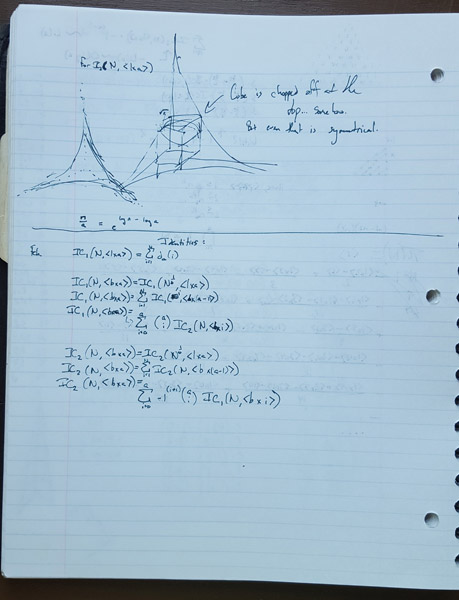 For I, N, <1xa>)
Cube is chopped off at the
top... somehow.
But even that is symmetrical.
n/a = e^(log n - log a)
Identities:
IC₁(N,<1xa>) = Σ dₐ(i)
IC₁(N,<bxa>) = IC₁(N^(1/b),<1xa>)
IC₁(N,<bxa>) = Σ IC₁(,<bx(a-1)>)
IC₁(N,<bxa>) =
Σ (a i) IC₂(N,<bxi>)
IC₂(N,<bxa>) = IC₂(N^(1/b),<1xa>)
IC₂(N,<bxa>) = Σ IC₂(N,<bx(a-1)>)
IC₂(N,<bxa>) =
Σ -1^(i+1) (a i) IC₁(N,<bxi>)